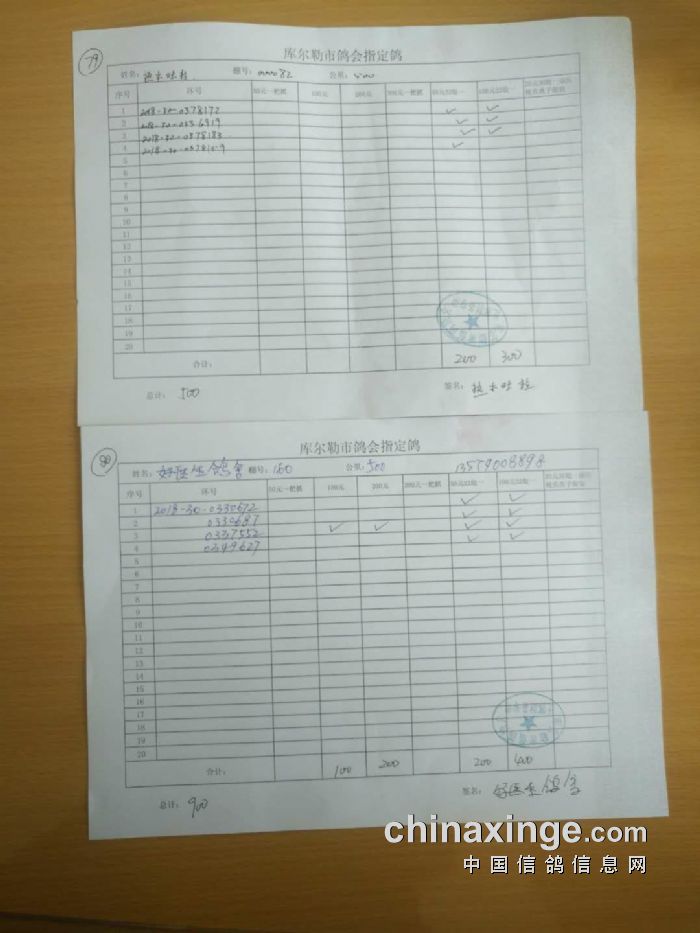 79
库尔勒市鸽会指定鸽
姓名: 棚号: 000082 公里: 500
序号 环号 50元一把抓 100元 200元 300元一把抓 50元22取一 100元22取一
1 2018-30-0378172
2 2018-30-0336919
3 2018-30-0378183
4
5
6
7
8
9
10
11
12
13
14
15
16
17
18
19
20
合计: 200 300
总计: 500 签名:
80
库尔勒市鸽会指定鸽
姓名: 好医生鸽舍 棚号: 160 公里: 500 13579008898
序号 环号 50元一把抓 100元 200元 300元一把抓 50元22取一 100元22取一
1 2018-30-0330672
2 0330687
3 0337552
4 0349627
5
6
7
8
9
10
11
12
13
14
15
16
17
18
19
20
合计: 100 200 200 400
总计: 900 签名: 好医生鸽舍
chinaxinge.com
中国信鸽信息网